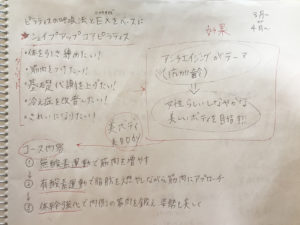 ピラティスの呼吸法と巨人をベースに
シェイプアップ コアピラティス
・体を引き締めたい!
・筋肉をつけたい!
・基礎代謝を上げたい!
・冷え症を改善したい!
・きれいになりたい!!
効果
3月〜
4月〜
アンチエイジングがテーマ
女性らしいしなやかな
美しいボディを目指す!!
美ボディ
コース内容
① 無酸素運動で筋肉を増やす
② 有酸素運動で脂肪を燃やしながら筋肉にアプローチ
③ 体幹強化で内側の筋肉を鍛え 姿勢を美しく